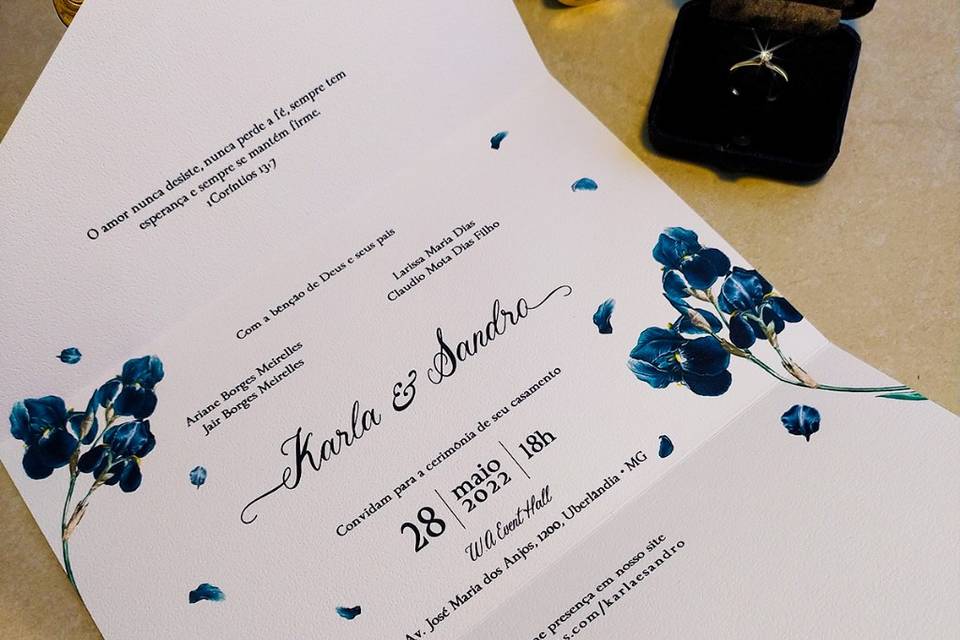 O amor nunca desiste, nunca perde a fé, sempre tem
esperança e sempre se mantém firme.
1Coríntios 13:7
Com a benção de Deus e seus pais
Ariane Borges Meirelles
Jair Borges Meirelles
Larissa Maria Dias
Claudio Mota Dias Filho
Karla & Sandro
Convidam para a cerimônia de seu casamento
28 maio 2022 18h
W A Event Hall
Av. José Maria dos Anjos, 1200, Uberlândia • MG
presença em nosso site
s.com/karlaesandro